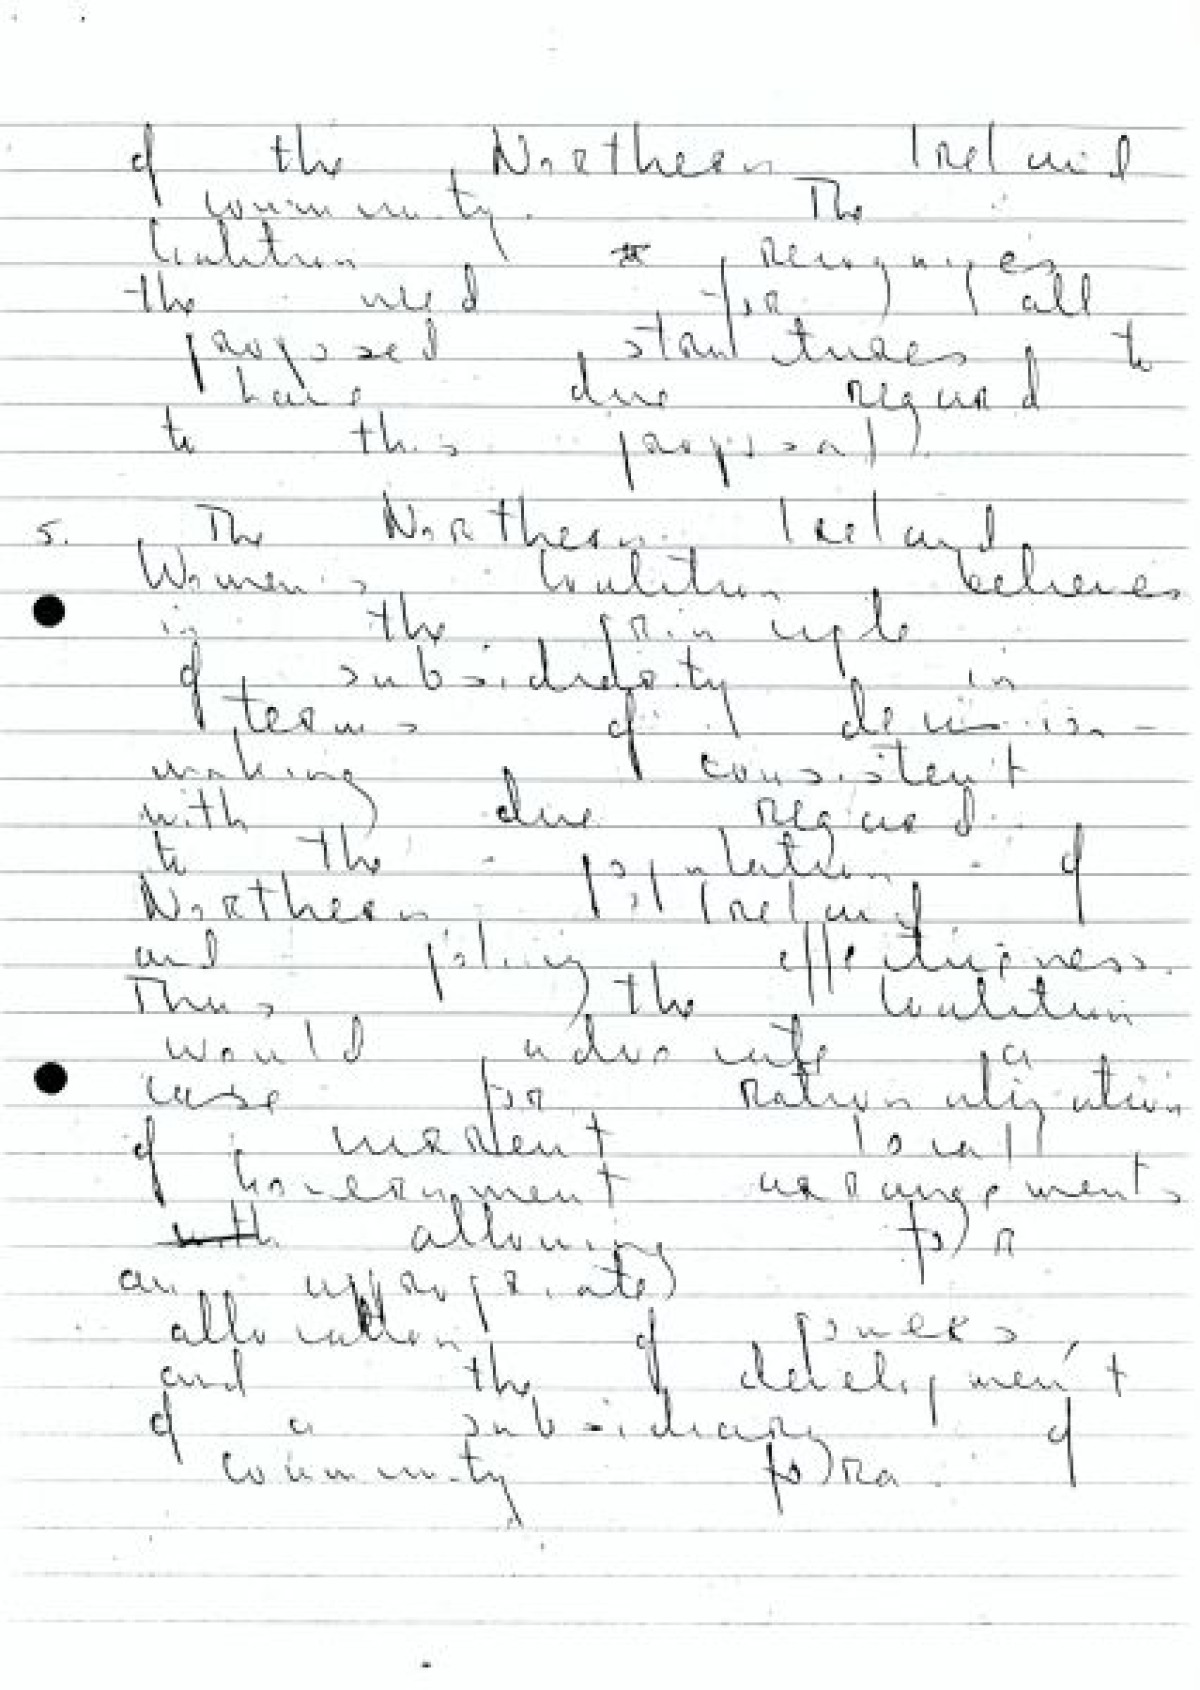 of the Northern Ireland
community. The
Coalition recognizes
the need for all
proposed structures to
have due regard
to this proposal).
5. The Northern Ireland
Women's Coalition believes
in the principle
of subsidiarity in
terms of decision-
making consistent
with due regard
to the population of
Northern Ireland
and policy effectiveness.
Thus the Coalition
would advocate a
case for rationalization
of current local
Government arrangements
with allowing for
an appropriate
allocation of powers,
and the development
of a subsidiary of
community fora.